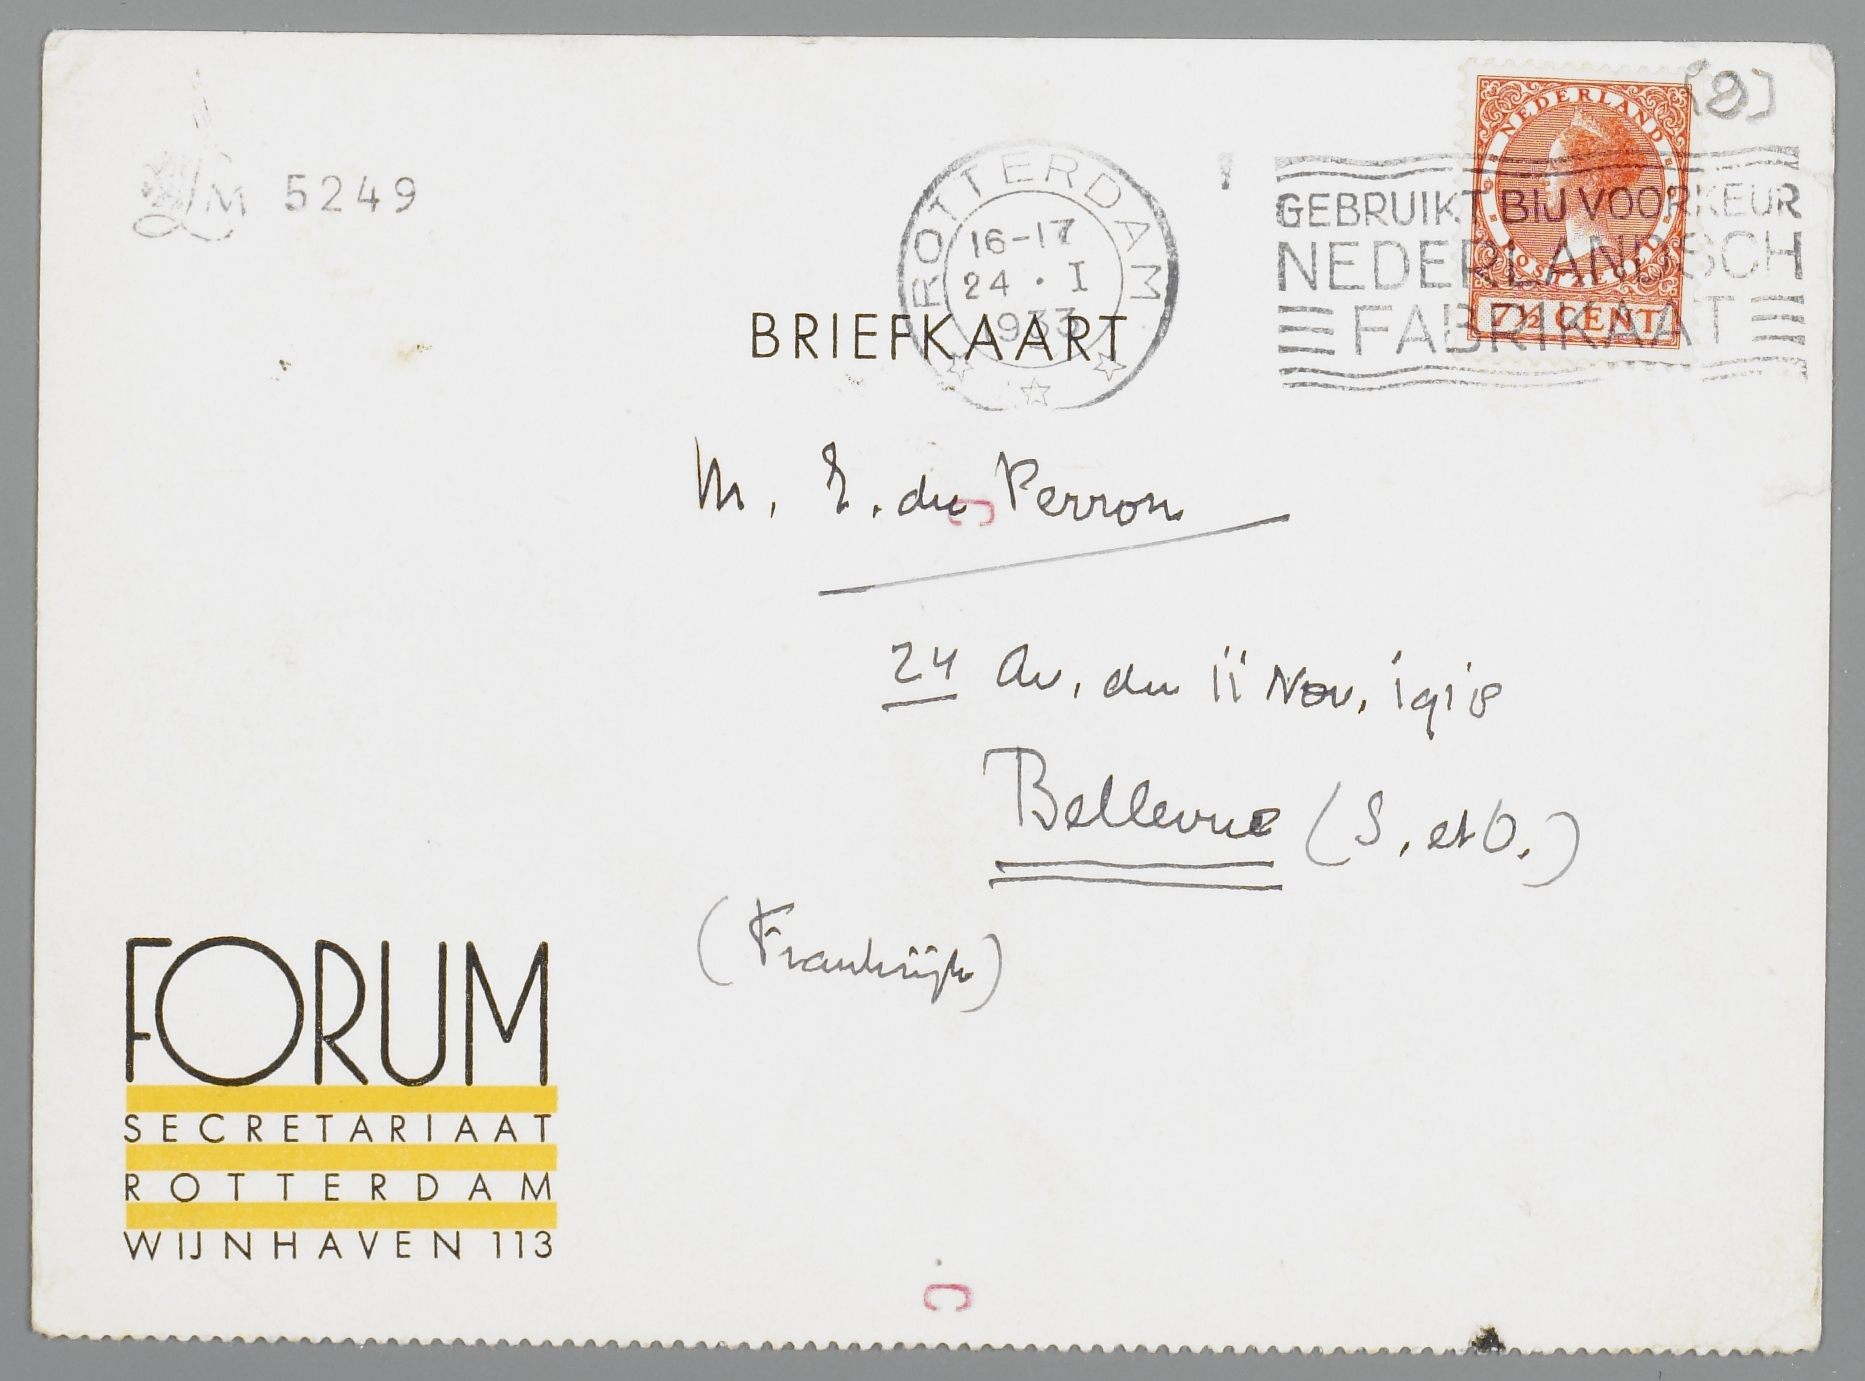 [8]
NEDERLAND
LM 5249
ROTTERDAM
16-17
24 · I
1933
GEBRUIKT BIJ VOORKEUR
NEDERLANDSCH
FABRIKAAT
POSTZEGEL
7½ CENT
BRIEFKAART
M. E. du Perron
24 Av. du 11 Nov. 1918
Bellevue (S. et O.)
(Frankrijk)
FORUM
SECRETARIAAT
ROTTERDAM
WIJNHAVEN 113
C
C